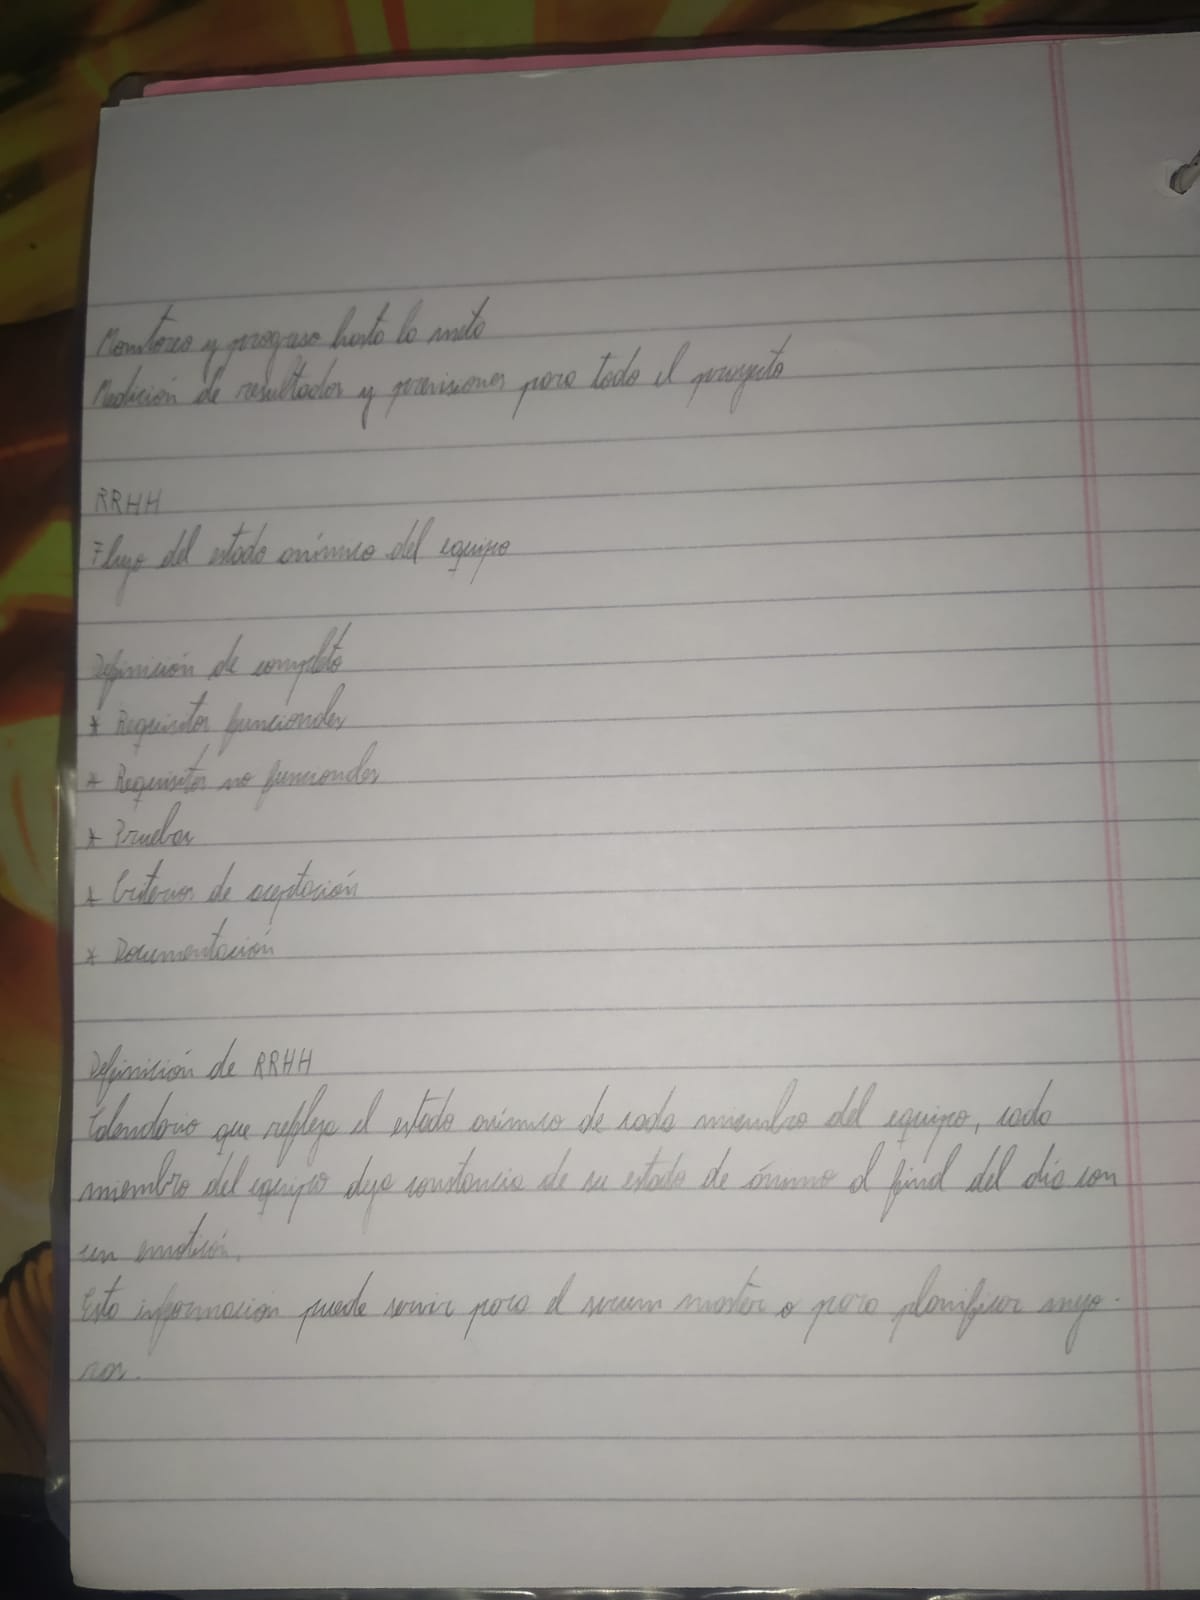 Monitoreo y progreso hasta la meta
Medición de resultados y previsiones para todo el proyecto
RRHH
Flujo del estado anímico del equipo
Definición de completo
* Requisitos funcionales
* Requisitos no funcionales
* Pruebas
* Criterios de aceptación
* Documentación
Definición de RRHH
Calendario que refleja el estado anímico de cada miembro del equipo, cada
miembro del equipo deja constancia de su estado de ánimo al final del día con
un emoticón.
Esta información puede servir para el scrum master o para planificar mejo-
ras.